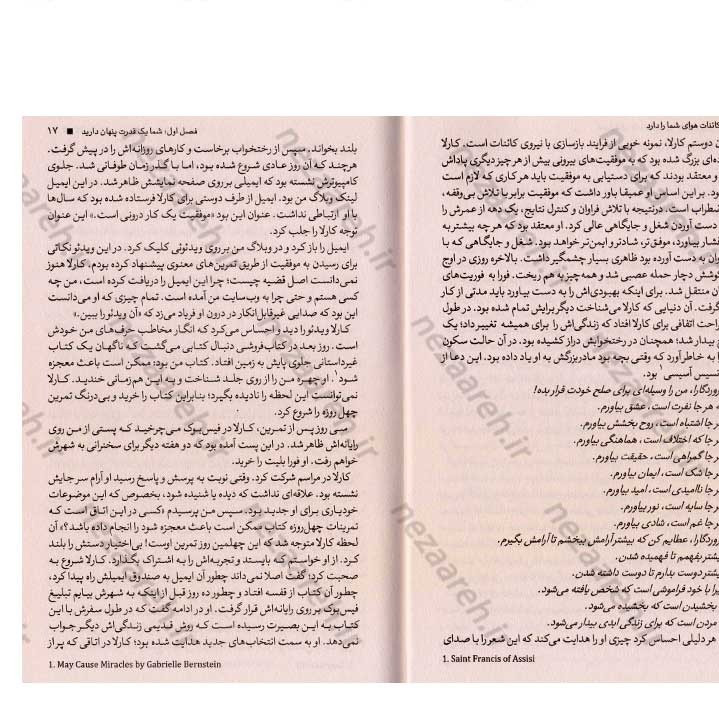 کائنات هوای شما را دارد
ن دوستم کارلا، نمونه خوبی از فرایند بازسازی با نیروی کائنات است. کارلا
‌ه‌ای بزرگ شده بود که به موفقیت‌های بیرونی بیش از هر چیز دیگری پاداش
و معتقد بودند که برای دستیابی به موفقیت باید هر کاری که لازم است
ود. بر این اساس او عمیقا باور داشت که موفقیت برابر با تلاش بی‌وقفه،
ضطراب است. درنتیجه با تلاش فراوان و کنترل نتایج، یک دهه از عمرش را
دست آوردن شغل و جایگاهی عالی کرد. او معتقد بود که هر چه بیشتر به
فشار بیاورد، موفق‌تر، شادتر و ایمن‌تر خواهد بود. شغل و جایگاهی که با
وان به دست آورده بود ظاهری بسیار چشمگیر داشت. بالاخره روزی در اوج
کوشش دچار حمله عصبی شد و همه‌چیز به هم ریخت. فورا به فوریت‌های
ن منتقل شد. برای اینکه بهبودی‌اش را به دست بیاورد باید مدتی از کار
گرفت. آن دنیایی که کارلا می‌شناخت دیگر برایش تمام شده بود. در طول
راحت اتفاقی برای کارلا افتاد که زندگی‌اش را برای همیشه تغییر داد؛ یک
ح بیدار شد؛ همچنان در رختخوابش دراز کشیده بود. در آن حالت سکون
را به خاطر آورد که وقتی بچه بود مادربزرگش به او یاد داده بود. این دعا از
نسیس آسیسی۱ بود.
روردگارا، من را وسیله‌ای برای صلح خودت قرار بده!
هر جا نفرت است، عشق بیاورم.
ر جا اشتباه است، روح بخشش بیاورم.
ر جا که اختلاف است، هماهنگی بیاورم.
ر جا گمراهی است، حقیقت بیاورم.
ر جا شک است، ایمان بیاورم.
ر جا ناامیدی است، امید بیاورم.
ر جا سایه است، نور بیاورم.
ر جا غم است، شادی بیاورم.
روردگارا، عطایم کن که بیشتر آرامش ببخشم تا آرامش بگیرم.
یشتر بفهمم تا فهمیده شدن.
یشتر دوست بدارم تا دوست داشته شدن.
یرا با خود فراموشی است که شخص یافته می‌شود.
بخشیدن است که بخشیده می‌شود.
مردن است که برای زندگی ابدی بیدار می‌شود.
هر دلیلی احساس کرد چیزی او را هدایت می‌کند که این شعر را با صدای
1. Saint Francis of Assisi
فصل اول: شما یک قدرت پنهان دارید ■ ۱۷
بلند بخواند. سپس از رختخواب برخاست و کارهای روزانه‌اش را در پیش گرفت.
هرچند که آن روز عادی شروع شده بود، اما با گذر زمان طوفانی شد. جلوی
کامپیوترش نشسته بود که ایمیلی بر روی صفحه نمایشش ظاهر شد. در این ایمیل
لینک وبلاگ من بود. ایمیل از طرف دوستی برای کارلا فرستاده شده بود که سال‌ها
با او ارتباطی نداشت. عنوان این بود «موفقیت یک کار درونی است.» این عنوان
توجه کارلا را جلب کرد.
ایمیل را باز کرد و در وبلاگ من بر روی ویدئوئی کلیک کرد. در این ویدئو نکاتی
برای رسیدن به موفقیت از طریق تمرین‌های معنوی پیشنهاد کرده بودم. کارلا هنوز
نمی‌دانست اصل قضیه چیست؛ چرا این ایمیل را دریافت کرده است، من چه
کسی هستم و حتی چرا به وب‌سایت من آمده است. تمام چیزی که او می‌دانست
این بود که صدایی غیرقابل‌انکار در درون او فریاد می‌زد که «آن ویدئو را ببین.»
کارلا ویدئو را دید و احساس می‌کرد که انگار مخاطب حرف‌های من خودش
است. روز بعد در کتاب‌فروشی دنبال کتابی می‌گشت که ناگهان یک کتاب
غیرداستانی جلوی پایش به زمین افتاد. کتاب من بود: ممکن است باعث معجزه
شود۱. او چهره من را از روی جلد شناخت و به این هم‌زمانی خندید. کارلا
نمی‌توانست این لحظه را نادیده بگیرد؛ بنابراین کتاب را خرید و بی‌درنگ تمرین
چهل روزه را شروع کرد.
سی روز پس از تمرین، کارلا در فیس‌بوک می‌چرخید که پستی از من روی
رایانه‌اش ظاهر شد. در این پست آمده بود که دو هفته دیگر برای سخنرانی به شهرش
خواهم رفت. او فورا بلیت را خرید.
کارلا در مراسم شرکت کرد. وقتی نوبت به پرسش و پاسخ رسید او آرام سر جایش
نشسته بود. علاقه‌ای نداشت که دیده یا شنیده شود، بخصوص که این موضوعات
خودیاری برای او جدید بود. سپس من پرسیدم «کسی در این اتاق است که
تمرینات چهل‌روزه کتاب ممکن است باعث معجزه شود را انجام داده باشد؟» آن
لحظه کارلا متوجه شد که این چهلمین روز تمرین اوست! بی‌اختیار دستش را بلند
کرد. از او خواستم که بایستد و تجربه‌اش را به اشتراک بگذارد. کارلا شروع به
صحبت کرد؛ گفت اصلا نمی‌داند چطور آن ایمیل به صندوق ایمیلش راه پیدا کرد،
چطور آن کتاب از قفسه افتاد و چطور ده روز قبل از اینکه به شهرش بیایم تبلیغ
فیس‌بوک بر روی رایانه‌اش قرار گرفت. او در ادامه گفت که در طول سفرش با این
کتاب به این بصیرت رسیده است که روش قدیمی زندگی‌اش دیگر جواب
نمی‌دهد. او به سمت انتخاب‌های جدید هدایت شده بود؛ کارلا در اتاقی که پر از
1. May Cause Miracles by Gabrielle Bernstein
nezaareh.ir